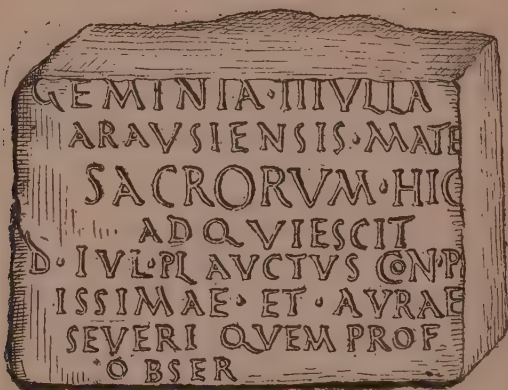 GEMINIA·IIIVLLA
ARAVSIENSIS·MATE
SACRORVM·HIC
ADQVIESCIT
D·IVL·PL AVCTVS CON·P
ISSIMAE·ET·AVRAE
SEVERI QVEM PROF
OBSER